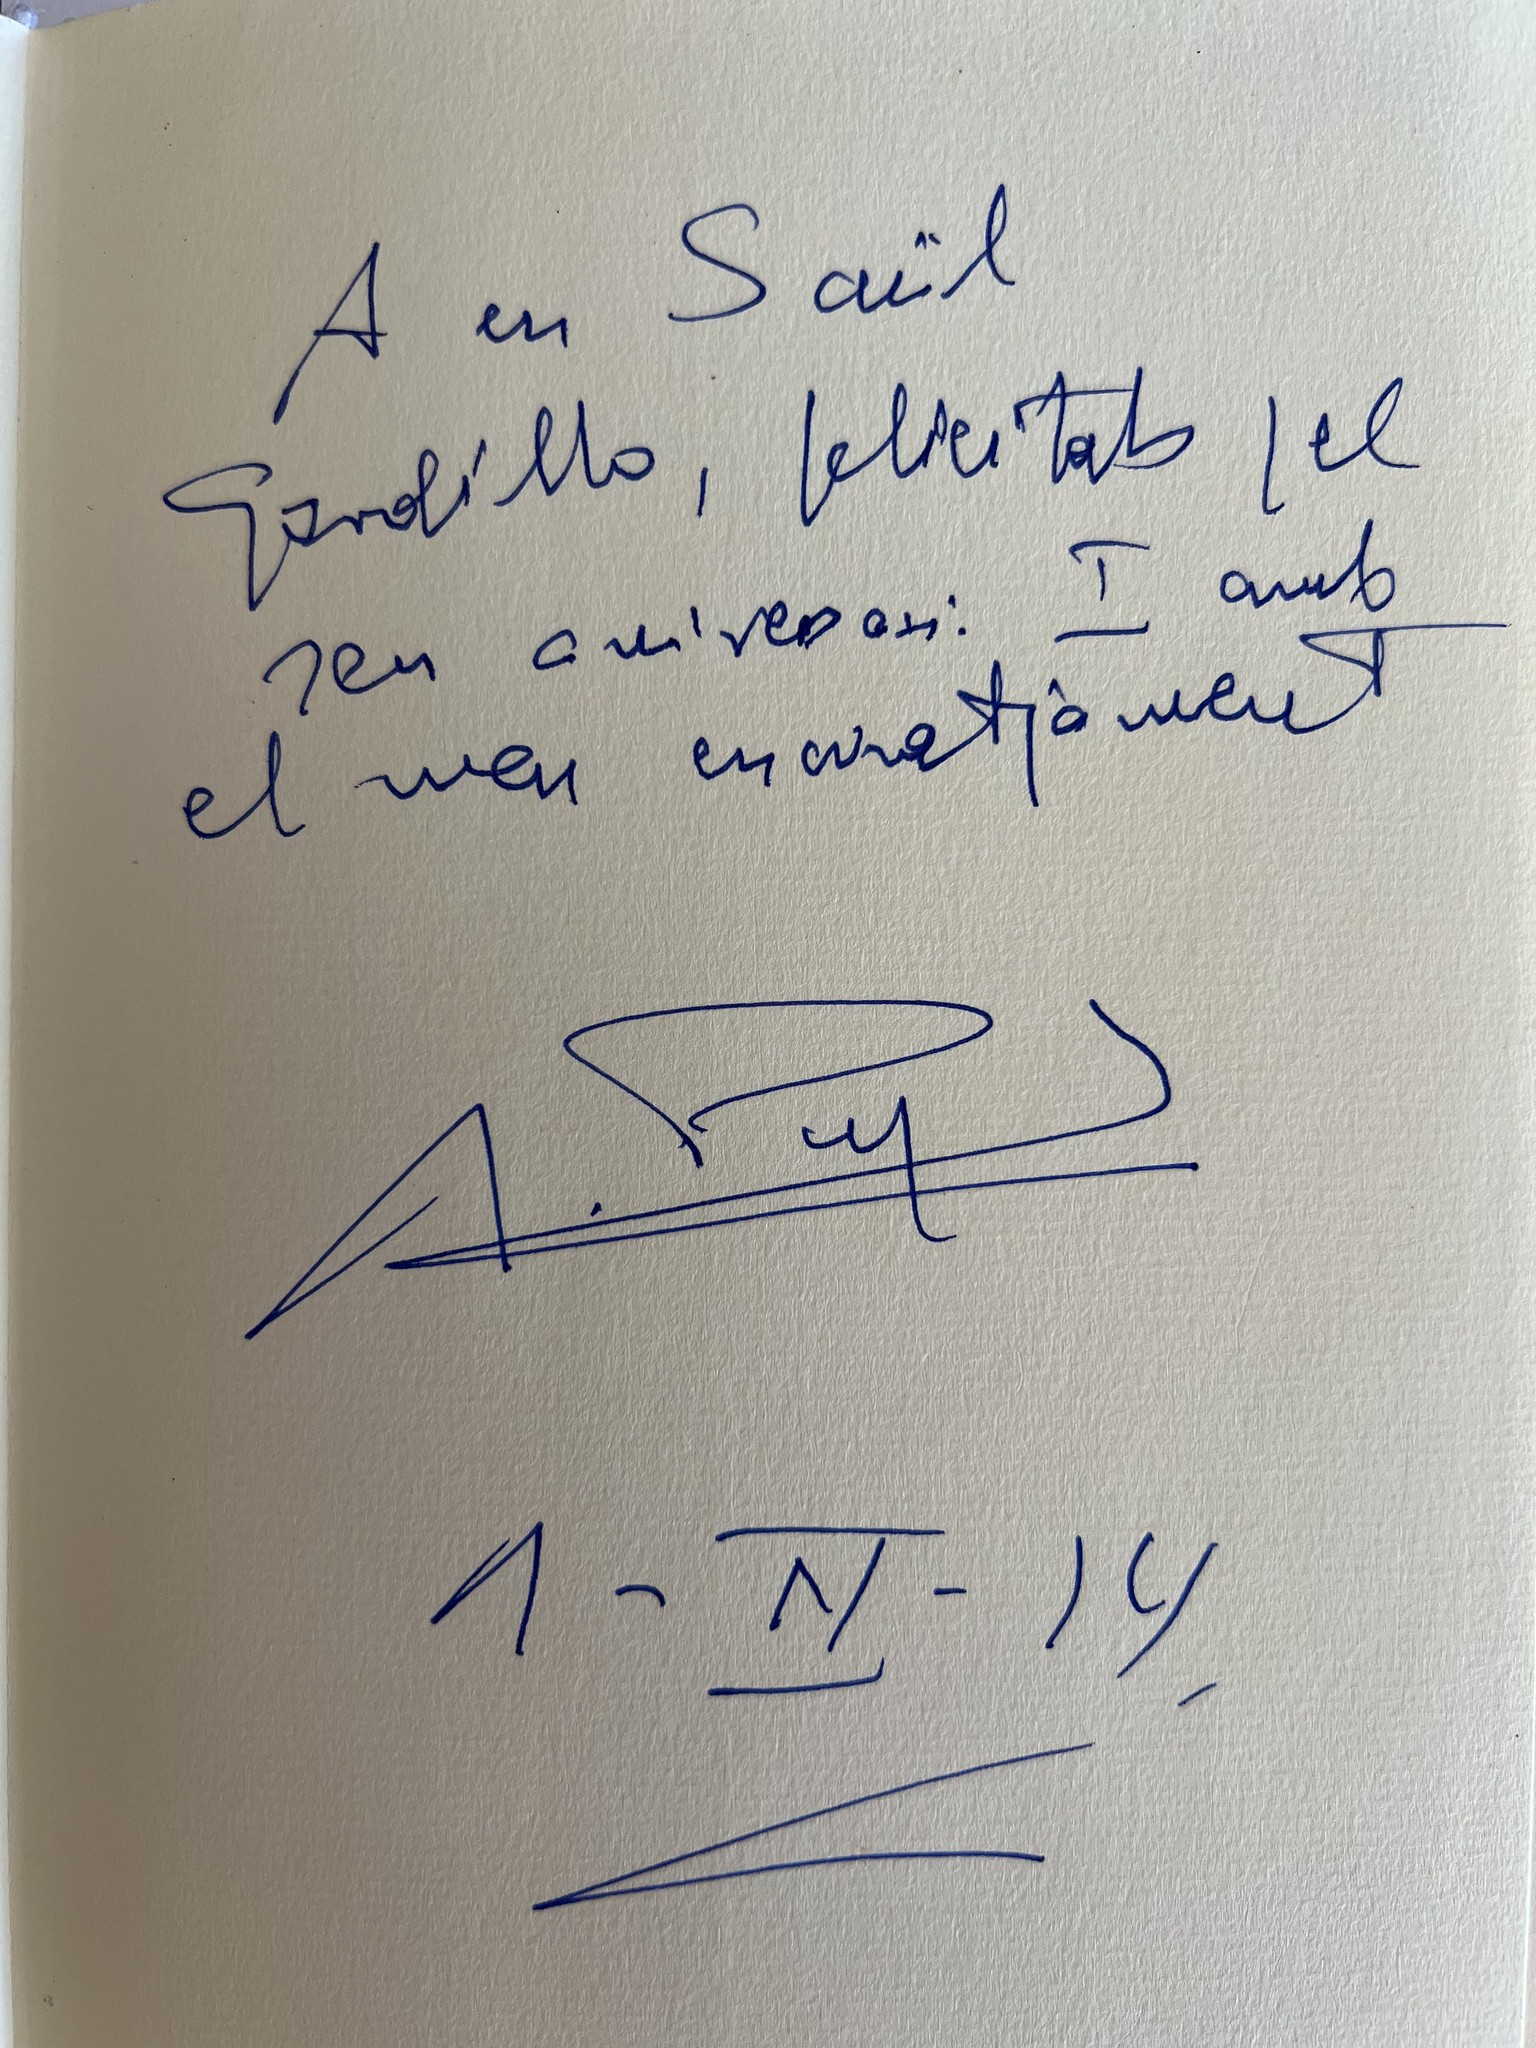 A en Saül
Gordillo, felicitats pel
seu aniversari. I amb
el meu encoratjament
A. Puj
1 - IV - 14